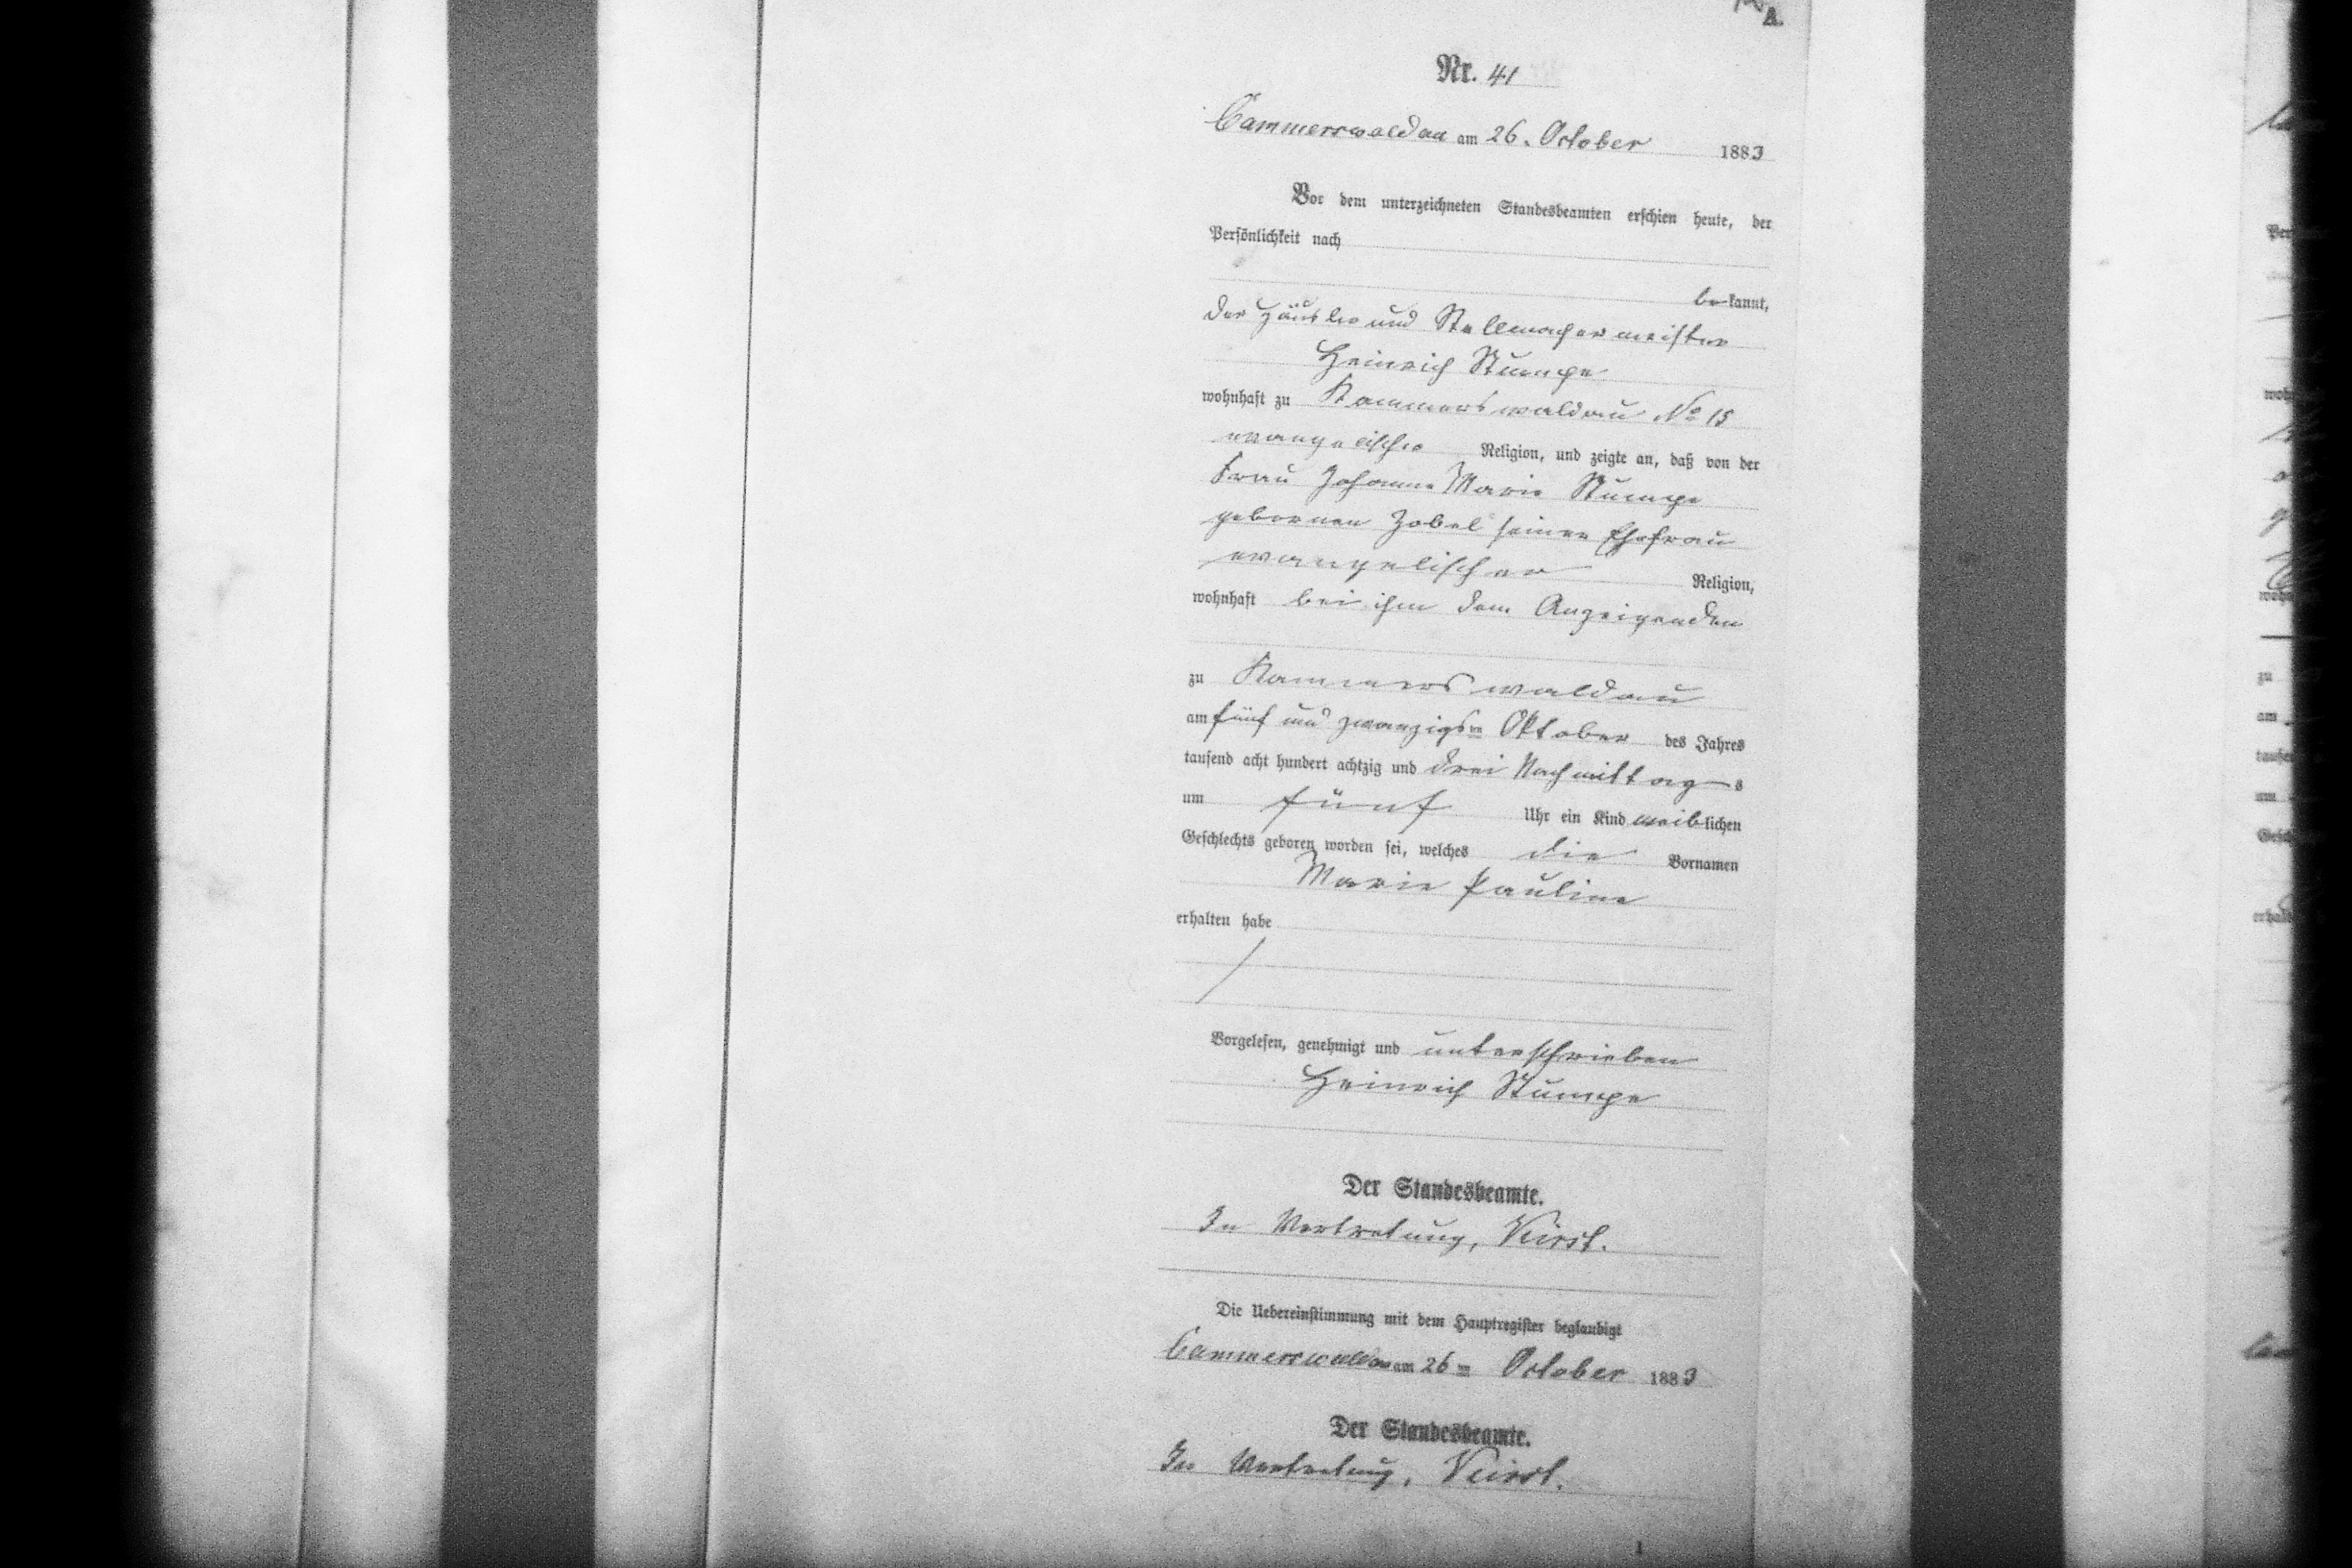 A.
Nr. 41
Cammerswaldau am 26. October 1883
Vor dem unterzeichneten Standesbeamten erschien heute, der
Persönlichkeit nach
bekannt,
der Häusler und Stellmachermeister
Heinrich Stumpe
wohnhaft zu Kammerswaldau No 15
evangelischer Religion, und zeigte an, daß von der
Frau Johanne Marie Stumpe
gebornen Zobel seiner Ehefrau
evangelischer Religion,
wohnhaft bei ihm dem Anzeigenden
zu Kammerswaldau
am fünf und zwanzigsten Oktober des Jahres
tausend acht hundert achtzig und drei Nachmittags
um fünf Uhr ein Kind weiblichen
Geschlechts geboren worden sei, welches die Vornamen
Marie Pauline
erhalten habe
Vorgelesen, genehmigt und unterschrieben
Heinrich Stumpe
Der Standesbeamte.
In Vertretung,
Die Uebereinstimmung mit dem Hauptregister beglaubigt
Cammerswaldau am 26ten October 1883
Der Standesbeamte.
In Vertretung,